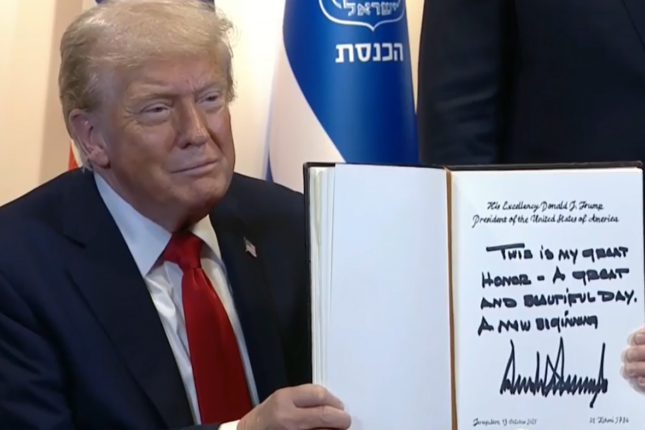 ישראל
הכנסת
His Excellency Donald J. Trump
President of the United States of America
THIS IS MY GREAT
HONOR - A GREAT
AND BEAUTIFUL DAY.
A NEW BEGINNING
Jerusalem, 13 October 2025